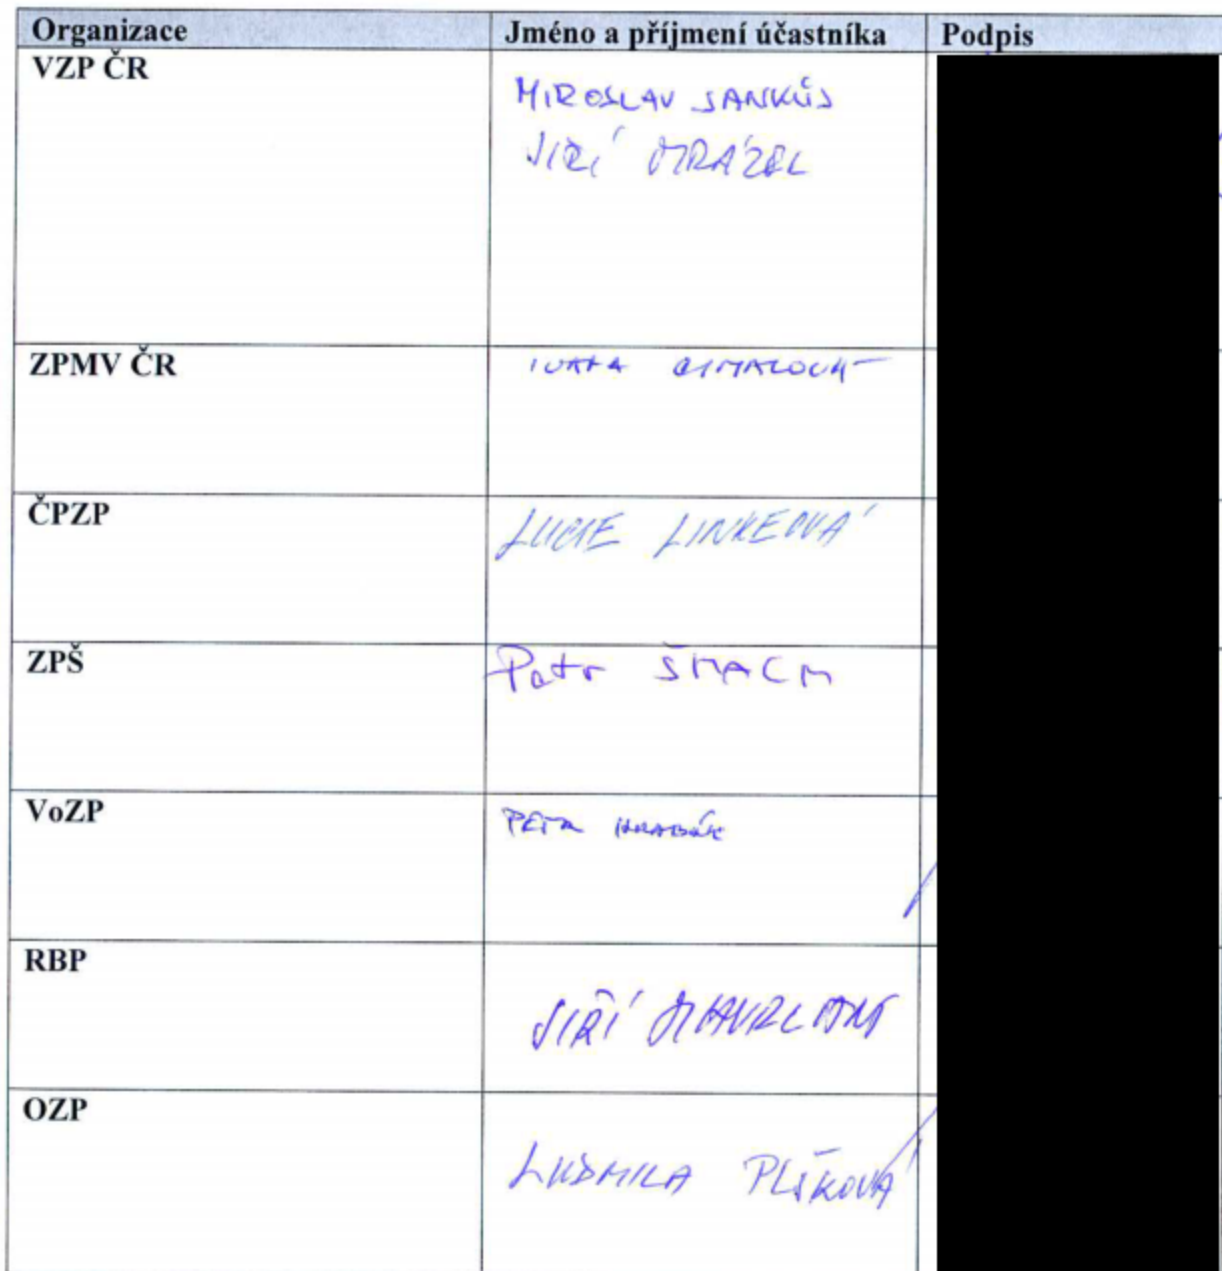 Organizace Jméno a příjmení účastníka Podpis
VZP ČR
MIROSLAV JANKŮJ
JIŘÍ MRÁZEK
ZPMV ČR
IVANA
ČPZP
LUCIE LINKEOVÁ
ZPŠ
Petr ŠMACH
VoZP
PETR HRABÁK
RBP
JIŘÍ
OZP
LUDMILA PLŠKOVÁ